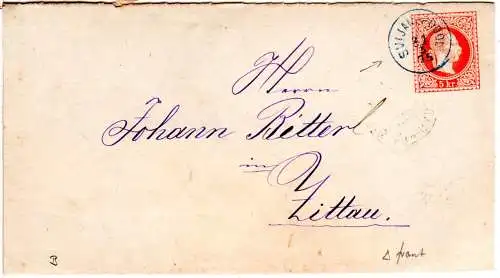 SVIJAN
5 kr
Herrn
Johann Bitterl
in
Zittau.
B
Δ frant